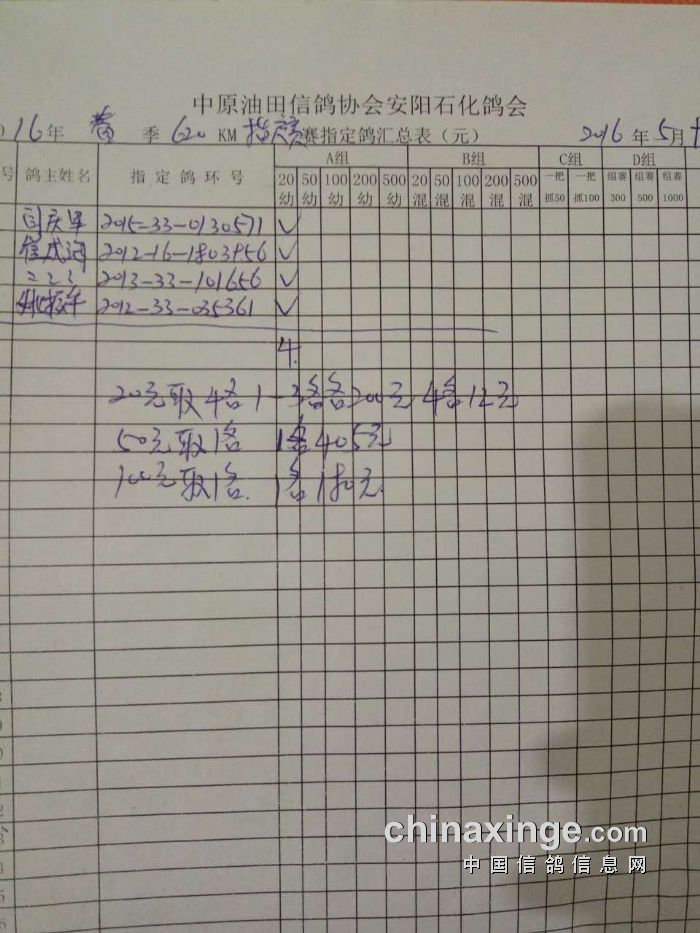 中原油田信鸽协会安阳石化鸽会
16年 春 季 620 KM 指定赛指定鸽汇总表（元） 2016 年 5月
号 鸽主姓名 指定鸽环号 A组 B组 C组 D组
20幼 50幼 100幼 200幼 500幼 20混 50混 100混 200混 500混 一把抓50 一把抓100 组赛300 组赛500 组赛1000
闫庆军 2015-33-0130571 √
2012-16-1803956 √
2013-33-101656 √
2012-33-035361 √
4.
20元取4名 1-3名各200元 4名12元
50元取1名 1名405元
100元取1名. 1名180元.
chinaxinge.com
中国信鸽信息网